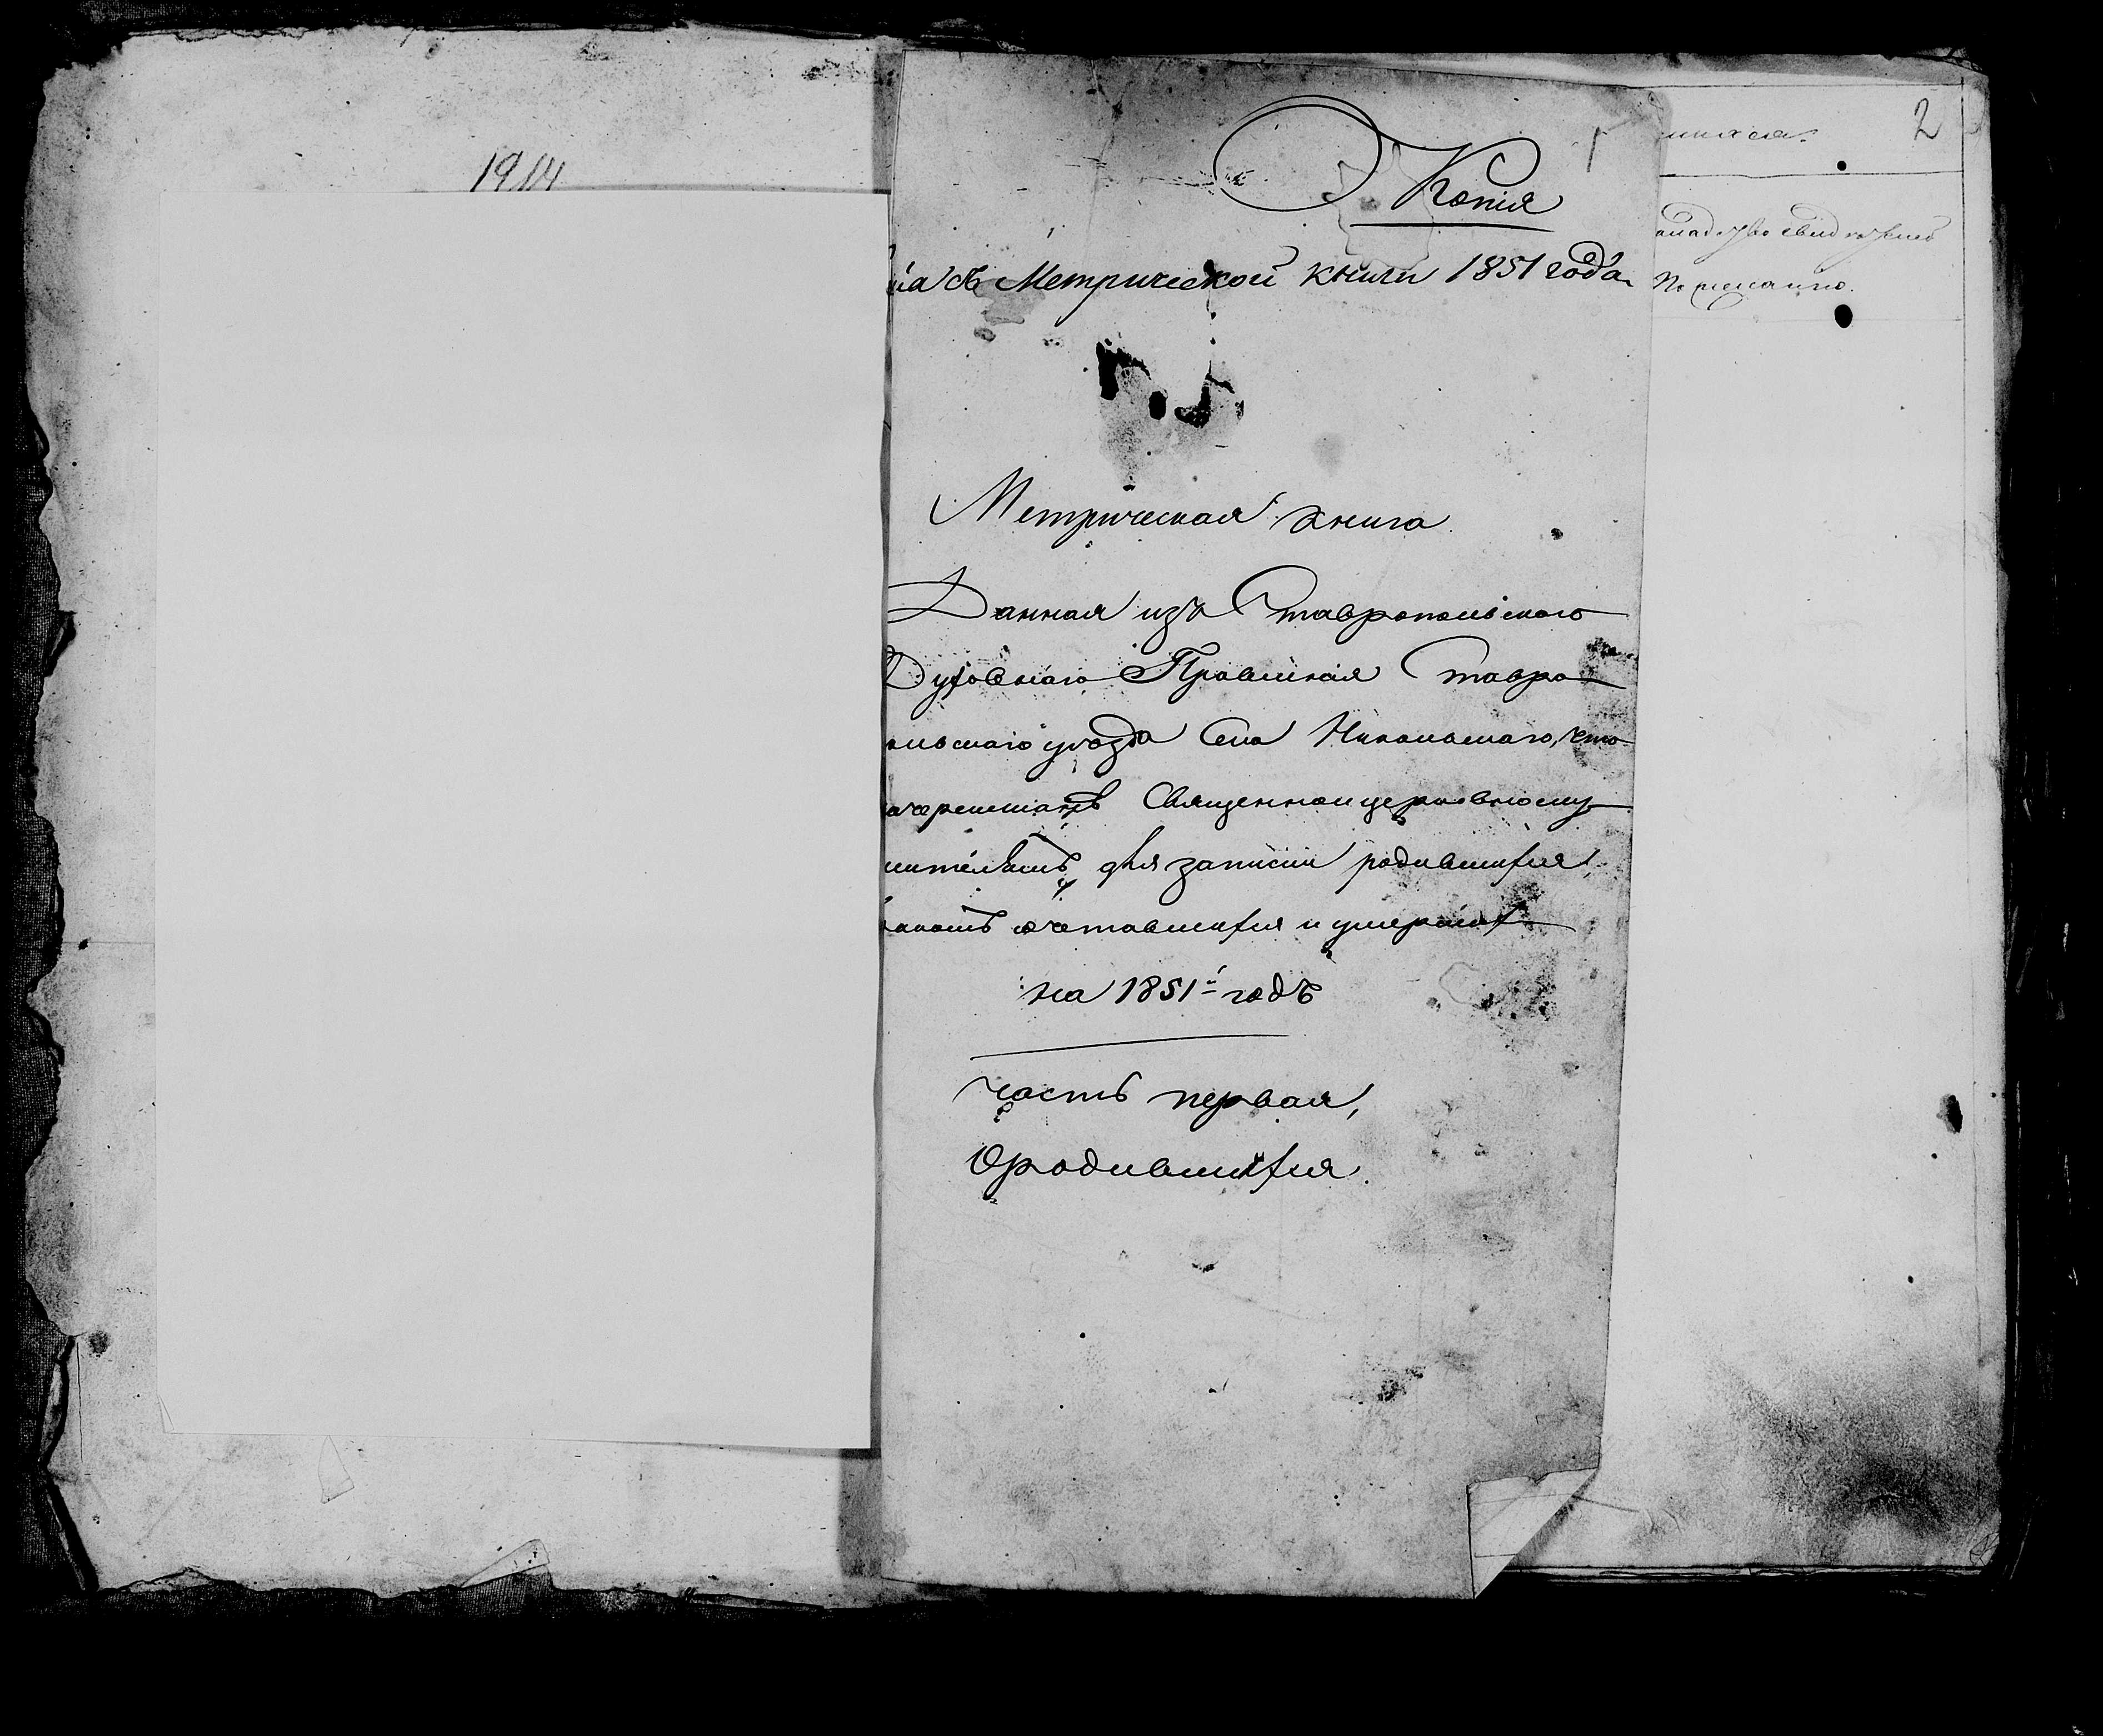 1914
1
Копія
съ Метрической книги 1851 года
Метрическая книга
Данная изъ Ставропольскаго
Духовнаго Правленія Ставро
польскаго уѣзда Села Никольскаго, что
Черемшанѣ Священноцерковнослу
жителямъ для записки родившихся,
бракомъ сочетавшихся и умершихъ
на 1851й годъ
часть первая,
О родившихся.
2